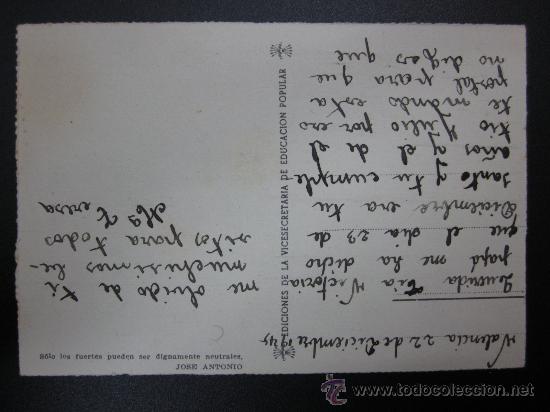 Valencia 22 de Diciembre 1945
Querida Tia Victoria
papá me ha dicho
que el dia 23 de
Diciembre era tu
santo y tu cumple
años y el de el
tio Julio por eso
te mando esta
postal para que
no digas que
me olvido de ti
muchisimos be-
sitos para todos
Mª Teresa
EDICIONES DE LA VICESECRETARIA DE EDUCACION POPULAR
Sólo los fuertes pueden ser dignamente neutrales.
JOSE ANTONIO
todocoleccion.net